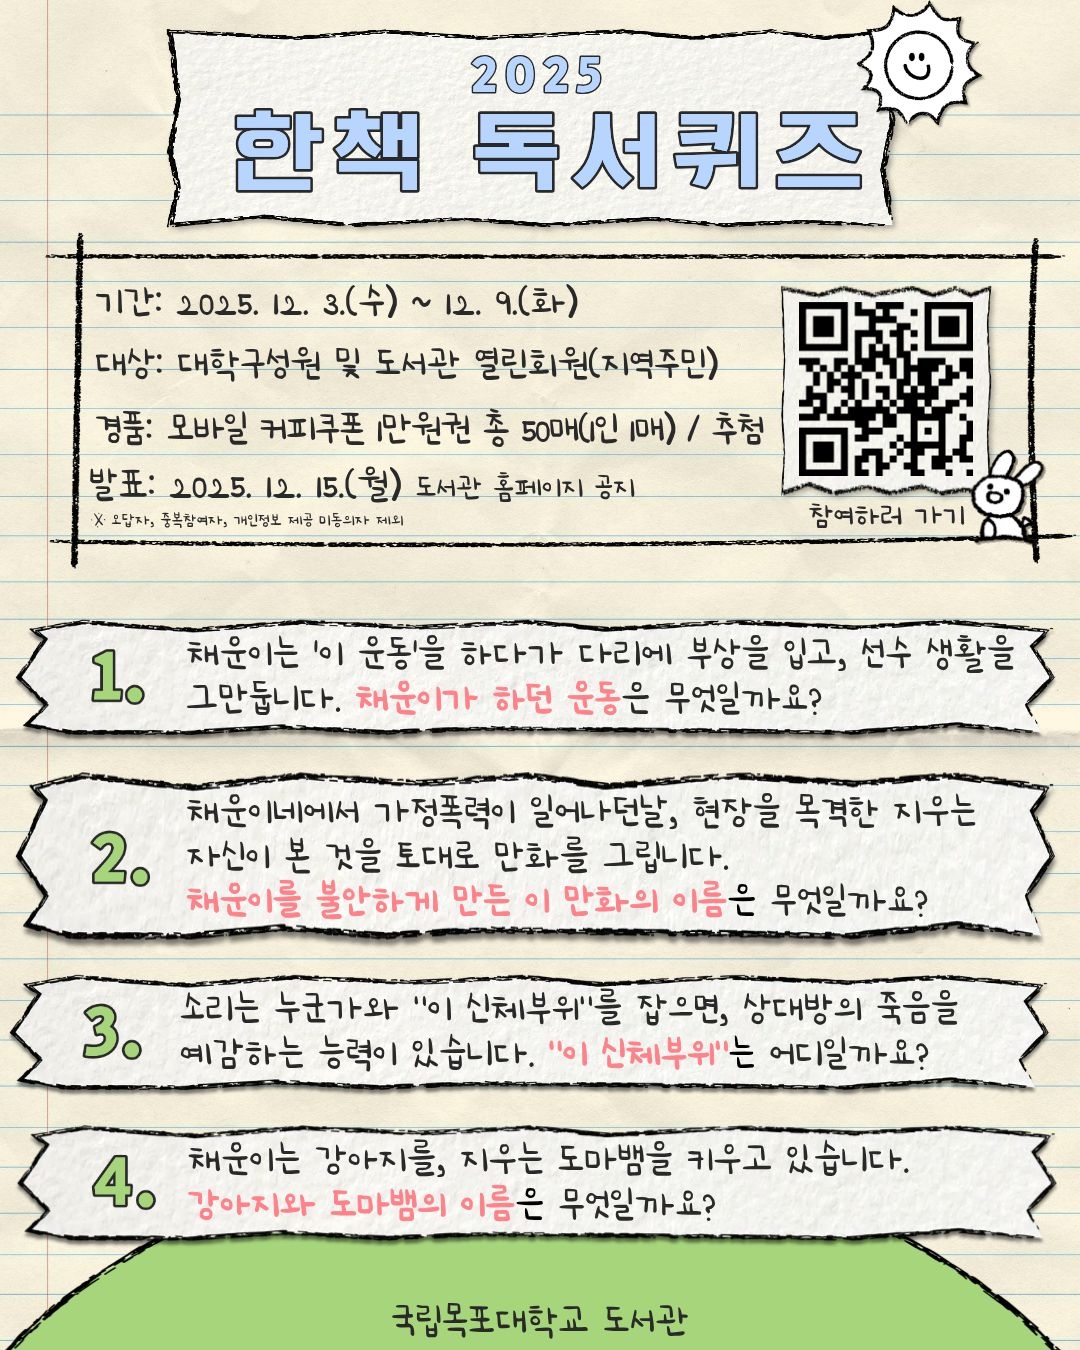 2025
한책 독서퀴즈
기간: 2025. 12. 3.(수) ~ 12. 9.(화)
대상: 대학구성원 및 도서관 열린회원(지역주민)
경품: 모바일 커피쿠폰 1만원권 총 50매(1인 1매) / 추첨
발표: 2025. 12. 15.(월) 도서관 홈페이지 공지
※ 오답자, 중복참여자, 개인정보 제공 미동의자 제외
참여하러 가기
1. 채운이는 '이 운동'을 하다가 다리에 부상을 입고, 선수 생활을
그만둡니다. 채운이가 하던 운동은 무엇일까요?
2. 채운이네에서 가정폭력이 일어나던날, 현장을 목격한 지우는
자신이 본 것을 토대로 만화를 그립니다.
채운이를 불안하게 만든 이 만화의 이름은 무엇일까요?
3. 소리는 누군가와 "이 신체부위"를 잡으면, 상대방의 죽음을
예감하는 능력이 있습니다. "이 신체부위"는 어디일까요?
4. 채운이는 강아지를, 지우는 도마뱀을 키우고 있습니다.
강아지와 도마뱀의 이름은 무엇일까요?
국립목포대학교 도서관